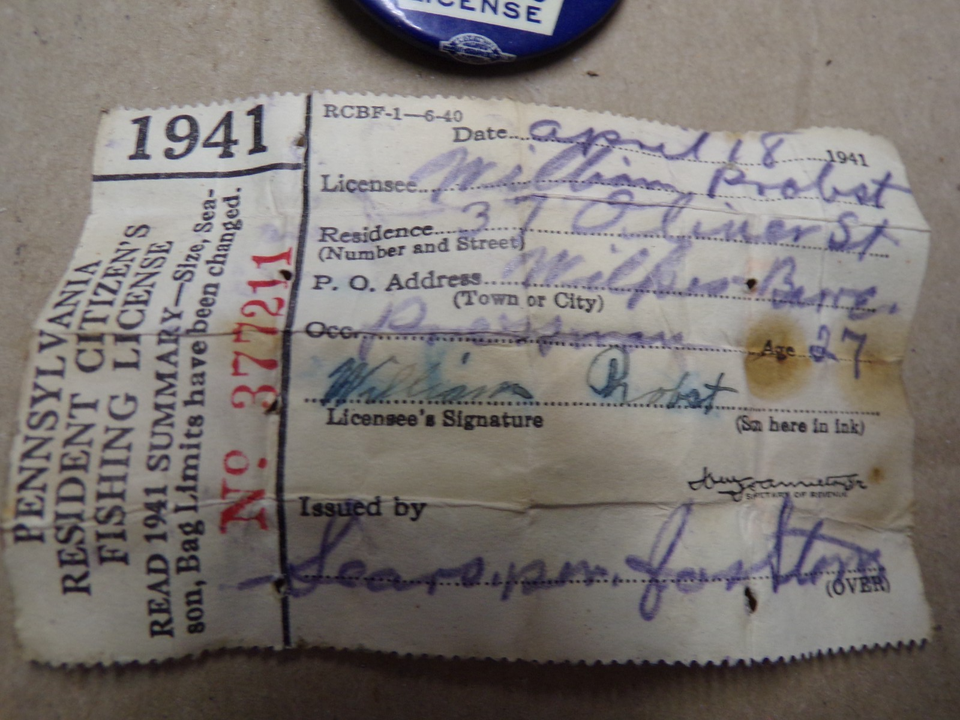 LICENSE
1941
PENNSYLVANIA
RESIDENT CITIZEN'S
FISHING LICENSE
READ 1941 SUMMARY—Size, Sea-
son, Bag Limits have been changed.
No. 377211
RCBF-1—6-40
Date April 18 1941
Licensee William Probst
Residence 37 Oliver St
(Number and Street)
P. O. Address Wilkes-Barre.
(Town or City)
Occ. Age 27
William Probst
Licensee's Signature (Sn here in ink)
SECRETARY OF REVENUE
Issued by
Sears,
(OVER)